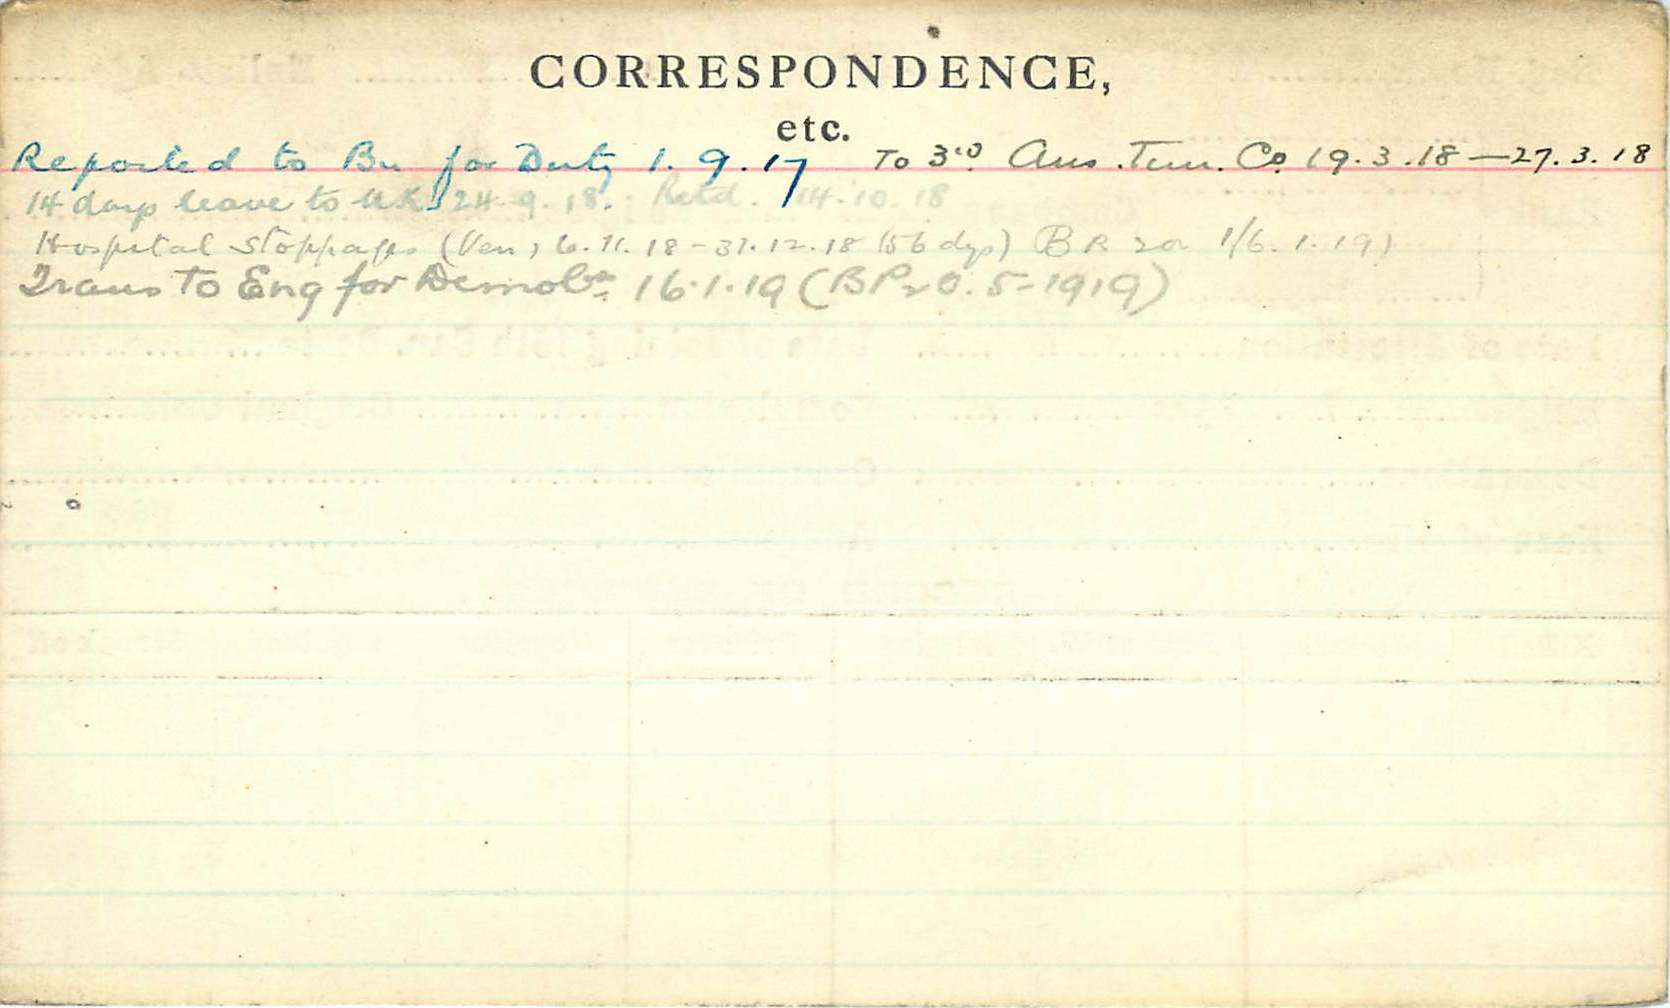 CORRESPONDENCE,
etc.
Reported to Bn for Duty 1.9.17 To 3rd Aus. Tun. Co. 19.3.18 — 27.3.18
14 days leave to U.K. 24.9.18. Retd. 14.10.18
Hospital Stoppages (Ven) 6.11.18 - 31.12.18 (56 dys) BR 20a 1/6.1.19)
Trans to Eng for Demobn. 16.1.19 (BP20.5-1919)